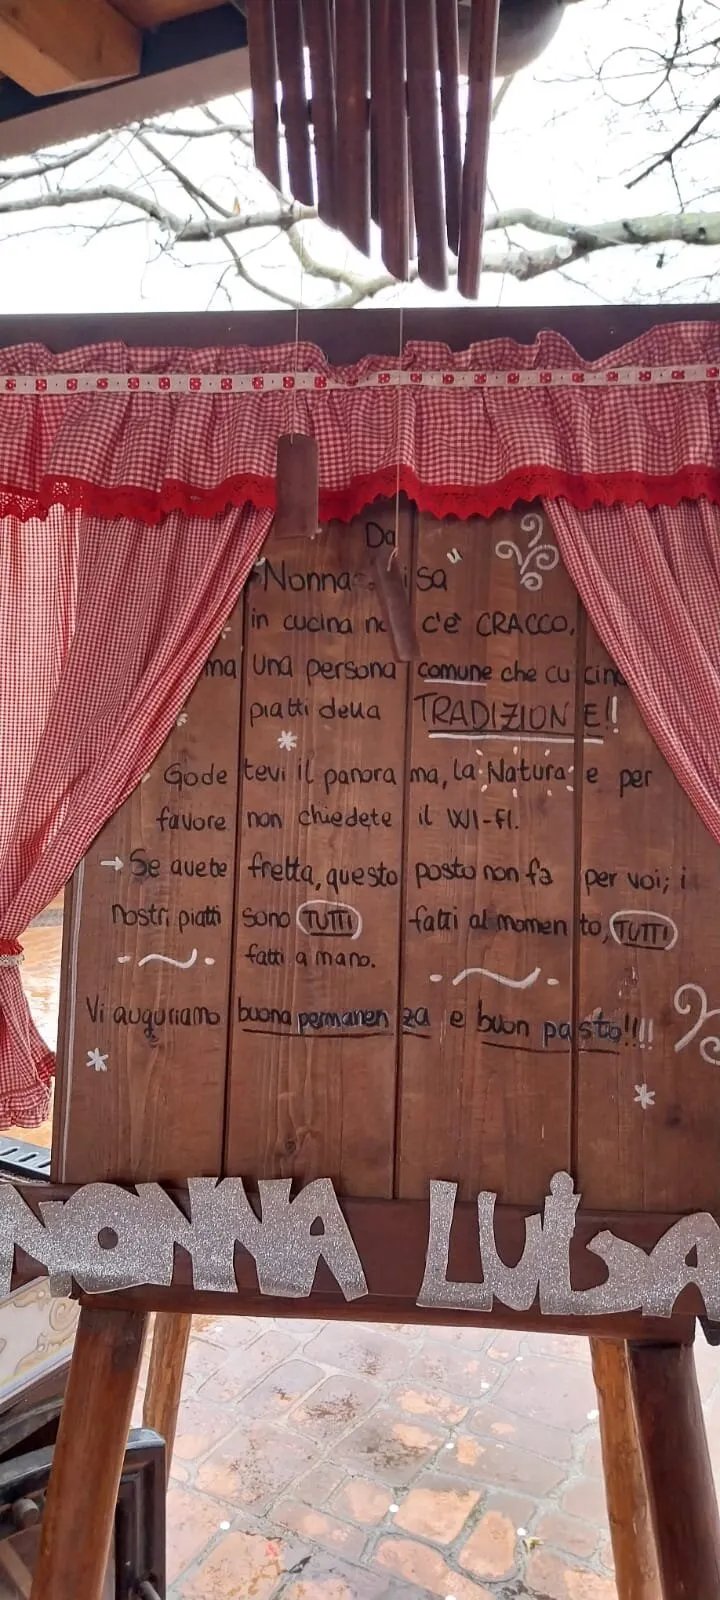 Da
Nonna Luisa
in cucina no c'è CRACCO,
ma una persona comune che cucina
piatti della TRADIZIONE!!
Godetevi il panorama, la Natura e per
favore non chiedete il WI-FI.
→ Se avete fretta, questo posto non fa per voi; i
nostri piatti sono TUTTI fatti al momento, TUTTI
fatti a mano.
Vi auguriamo buona permanenza e buon pasto!!!!
NONNA LUISA